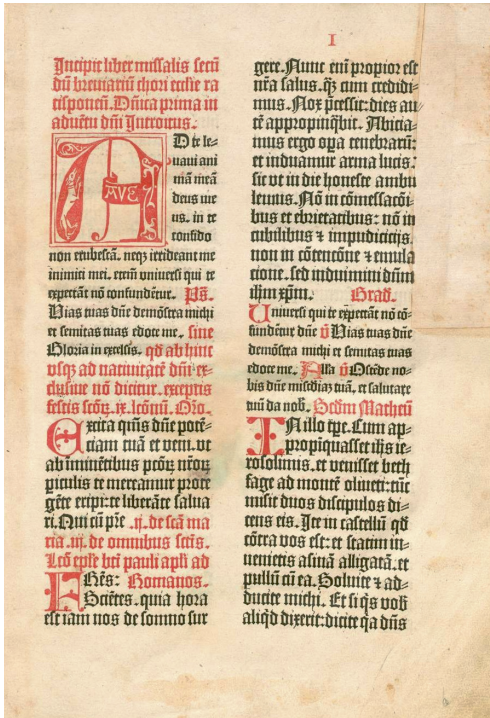 I
Incipit liber missalis secū
dū breviariū chori ecclīe ra
tisponeñ. Dñica prima in
adventu dñi Introitus.
AVE
D te le-
vavi ani
mā meā
deus me
us. in te
confido
non erubescā. neqȝ irrideant me
inimici mei. etenī universi qui te
expectāt nō confundētur. Ps.
Vias tuas dñe demōstra michi
et semitas tuas edoce me. sine
Gloria in excelsis. qd ab hinc
usqȝ ad nativitatē dñi ex-
clusive nō dicitur. exceptis
festis
Excita qs̄ dñe potē-
ciam tuā et veni. ut
ab iminētibus pctōȝ nrōȝ
piculis te mereamur prote
gēte eripi: te liberāte salva
ri. Qui cū pre .ij. de scā ma
ria .iij. de omnibus sctīs.
Lcō epl̄e bti pauli apl̄i ad
FRēs: Romanos.
Sciētes. quia hora
est iam nos de somno sur
gere. Nunc enī propior est
nrā salus. qȝ cum credidi-
mus. Nox pcessit: dies au-
tē appropinqbit. Abicia-
mus ergo opa tenebrarū:
et induamur arma lucis.
sic ut in die honeste ambu
lemus. Nō in cōmessacōi
bus et ebrietatibus: nō in
cubilibus ⁊ impudicitijs.
non in cōtencōne ⁊ emula
cione. sed induimini dñm
ihm xpm. Grad.
Universi qui te expectāt nō cō-
fundētur dñe ℣ Vias tuas dñe
demōstra michi et semitas tuas
edoce me. Alla ℣ Ostēde no-
bis dñe misćdiaȝ tuā. et salutare
tuū da nob. Scdm Matheū
IN illo tpe. Cum ap-
propiquasset ihs ie-
rosolimis. et venisset beth
fage ad montē oliveti: tūc
misit duos discipulos di-
cens eis. Ite in castellū qd
cōtra vos est: et statim in-
venietis asinā alligatā. et
pullū cū ea. Solvite ⁊ ad-
ducite michi. Et si qs vob
aliqd dixerit: dicite qa dñs